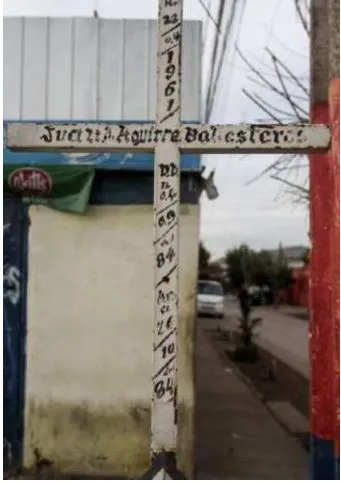 22
04
1961
Juan A. Aguirre Ballesteros
D.D.
04
09
84
26
10
84
Mills